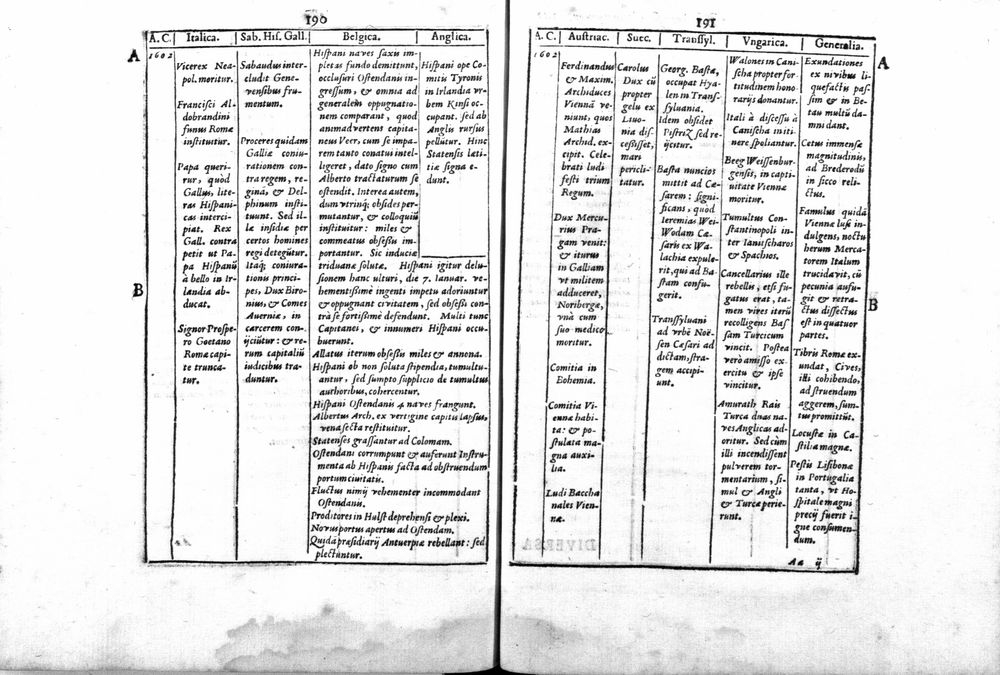 190
A. C.
Italica.
Sab. His. Gall.
Belgica.
Anglica.
A
B
1602
Vicerex Nea-
pol. moritur.
Francisci Al-
dobrandini
funus Romæ
instituitur.
Papa queri-
tur, quòd
Gallus, lite-
ras Hispani-
cas interci-
piat. Rex
Gall. contra
petit ut Pa-
pa Hispanũ
à bello in Ir-
landia ab-
ducat.
Signor Prospe-
ro Goetano
Romæ capi-
te trunca-
tur.
Sabaudus inter-
cludit Gene-
vensibus fru-
mentum.
Proceres quidam
Galliæ coniu-
rationem con-
tra regem, re-
ginã, & Del-
phinum insti-
tuunt. Sed il-
læ insidiæ per
certos homines
regi detegũtur.
Itaq; coniura-
tionis princi-
pes, Dux Biro-
nius, & Comes
Auerniæ, in
carcerem con-
ijciũtur: & re-
rum capitaliũ
iudicibus tra-
duntur.
Hispani naves saxis im-
pletas fundo demittunt,
occlusuri Ostendani in-
gressum, & omnia ad
generalem oppugnatio-
nem comparant, quod
animadvertens capita-
neus Verr, cum se impa-
rem tanto conatui intel-
ligeret, dato signo cum
Alberto tractaturum se
ostendit. Interea autem,
dum vtrinq; obsides per-
mutantur, & colloquiũ
instituitur: miles &
commeatus obsessis im-
portantur. Sic induciæ
triduanæ solutæ. Hispani igitur delu-
sionem hanc ulturi, die 7. Ianuar. ve-
hementissimè ingenti impetu adoriuntur
& oppugnant civitatem, sed obsessi con-
trà se fortissimè defendunt. Multi tunc
Capitanei, & innumeri Hispani occu-
buerunt.
Allatus iterum obsessis miles & annona.
Hispani ob non soluta stipendia, tumultu-
antur, sed sumpto supplicio de tumultus
authoribus, cohercentur.
Hispani Ostendanis 4 naves frangunt.
Albertus Arch. ex vertigine capitis lapsus,
vena secta restituitur.
Statenses grassantur ad Colomam.
Ostendani corrumpunt & auferunt Instru-
menta ab Hispanis facta ad obstruendum
portum civitatis.
Fluctus nimij vehementer incommodant
Ostendanis.
Proditores in Hulst deprehensi & plexi.
Novus portus apertus ad Ostendam.
Quidã præsidiarij Antverpiæ rebellant: sed
plectuntur.
Hispani ope Co-
mitis Tyronis
in Irlandia vr-
bem Kinsi oc-
cupant. sed ab
Anglis rursus
pellũtur. Hinc
Statensis læti-
tiæ signa e-
dunt.
191
A. C.
Austriac.
Suec.
Transsyl.
Vngarica.
Generalia.
A
B
1602
Ferdinandus
& Maxim.
Archiduces
Viennã ve-
niunt, quos
Mathias
Archid. ex-
cipit. Cele-
brati ludi
festi trium
Regum.
Dux Mercu-
rius Pra-
gam venit:
& iturus
in Galliam
vt militem
adduceret,
Noribergæ,
vnà cum
suo medico
moritur.
Comitia in
Bohemia.
Comitia Vi-
ennæ habi-
ta: & po-
stulata ma-
gna auxi-
lia.
Ludi Baccha
nales Vien-
næ.
Carolus
Dux cũ
propter
gelu ex
Liuo-
nia dis-
cessisset,
mari
pericli-
tatur.
Georg. Basta,
occupat Hya-
len in Trans-
syluania.
Idem obsidet
Pistriz sed re-
ijcitur.
Basta nuncios
mittit ad Cæ-
sarem: signi-
ficans, quòd
Ieremias Wei-
Wodam Cæ-
saris ex Wa-
lachia expule-
rit, qui ad Ba-
stam confu-
gerit.
Transsyluani
ad vrbẽ Noë-
sen Cæsari ad-
dictam, stra-
gem accipi-
unt.
Walones in Cani-
scha propter for-
titudinem hono-
rarijs donantur.
Itali à discessu à
Canischa in iti-
nere spoliantur.
Beeg Weissenbur-
gensis, in capti-
uitate Viennæ
moritur.
Tumultus Con-
stantinopoli in-
ter Ianitscharos
& Spachios.
Cancellarius ille
rebellis, etsi fu-
gatus erat, ta-
men vires iterũ
recolligens Bas
sam Turcicum
vincit. Postea
verò amisso ex-
ercitu & ipse
vincitur.
Amurath Rais
Turca duas na-
ves Anglicas ad-
oritur. Sed cùm
illi incendissent
pulverem tor-
mentarium, si-
mul & Angli
& Turcæ perie-
runt.
Exundationes
ex nivibus li-
quefactis pas-
sim & in Be-
tau multũ da-
mni dant.
Cetus immensæ
magnitudinis,
ad Brederodũ
in sicco reli-
ctus.
Famulus quidã
Viennæ lusui in-
dulgens, noctu
herum Merca-
torem Italum
trucidavit, cũ
pecunia aufu-
git & retra-
ctus dissectus
est in quatuor
partes.
Tibris Romæ ex-
undat, Cives,
illi cohibendo,
ad struendum
aggerem, sum-
tus promittũt.
Locustæ in Ca-
stilia magnæ.
Pestis Lisibonæ
in Portugalia
tanta, vt Ho-
spitale magni
precij fuerit i-
gne consumen-
dum.
Aa ij